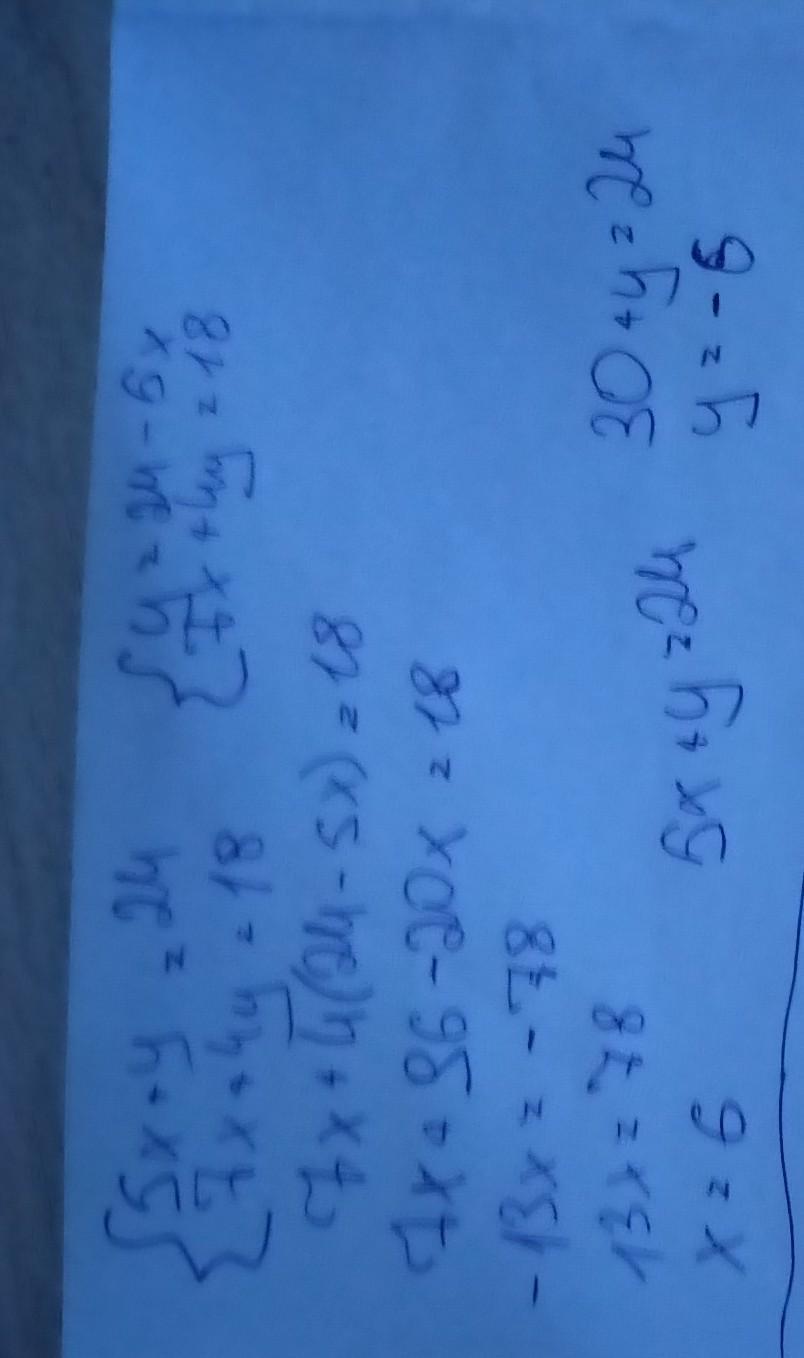 {5x+y=24 {y=24-5x
{7x+4y=18 {7x+4y=18
7x+4(24-5x)=18
7x+96-20x=18
-13x=-78
13x=78
x=6 5x+y=24 30+y=24
y=-6